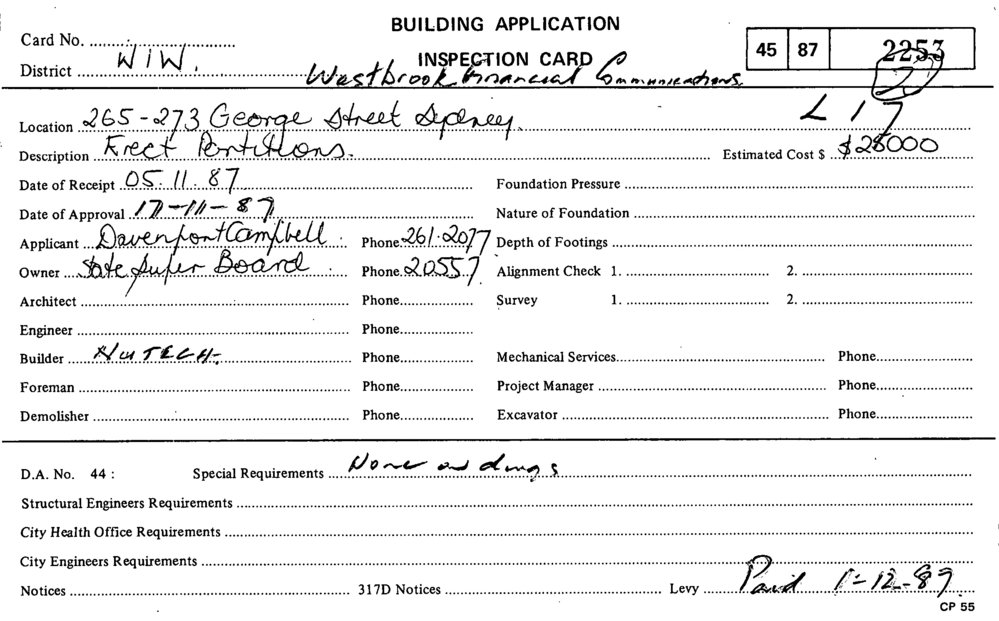 BUILDING APPLICATION
Card No. W/W.
INSPECTION CARD 45 87 2253
District Westbrook Financial Communications
L 17
Location 265-273 George Street Sydney.
Description Erect Partitions. Estimated Cost $ $28000
Date of Receipt 05.11.87 Foundation Pressure
Date of Approval 17-11-87 Nature of Foundation
Applicant Davenport Campbell Phone 261.2077 Depth of Footings
Owner State Super Board Phone. 20557 Alignment Check 1. 2.
Architect Phone Survey 1. 2.
Engineer Phone
Builder NUTECH. Phone Mechanical Services Phone
Foreman Phone Project Manager Phone
Demolisher Phone Excavator Phone
D.A. No. 44 : Special Requirements None on dwgs
Structural Engineers Requirements
City Health Office Requirements
City Engineers Requirements
Notices 317D Notices Levy Paid 1-12-87.
CP 55